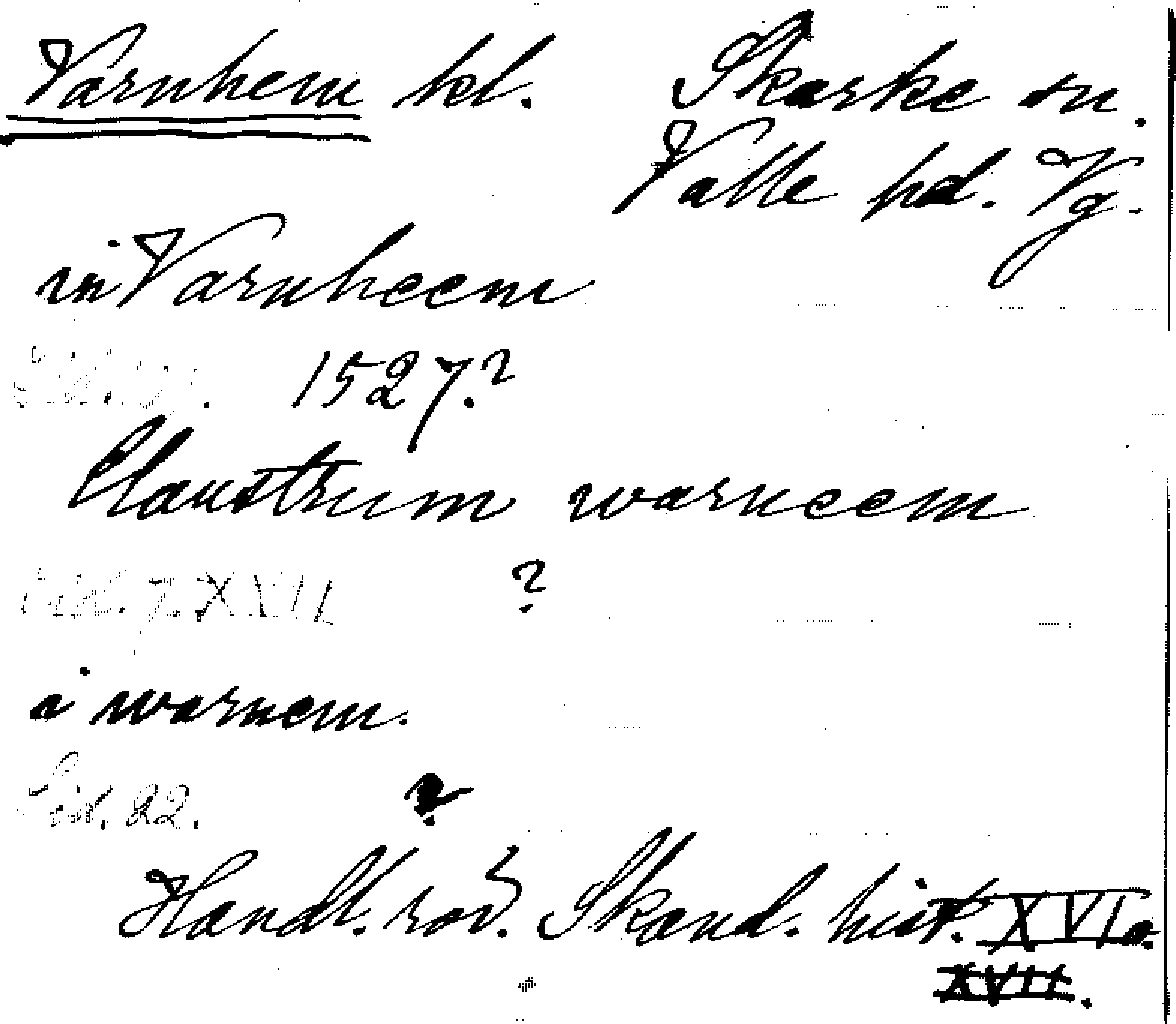 Varnhem kl. Skarke sn.
Valle hd. Vg.
in Varnheem
1527?
Claustrum warneem
XVII ?
i warnem.
Sid. 22. ?
Handl. rör. Skand. hist. XVI o.
XVII.